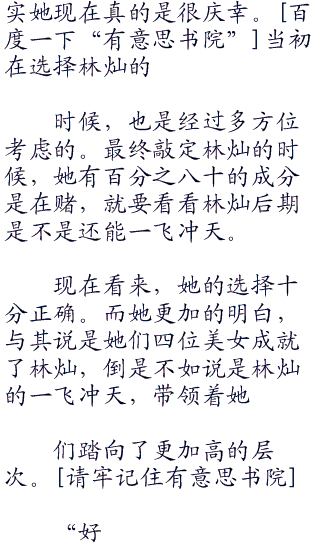 实她现在真的是很庆幸。[百
度一下“有意思书院”]当初
在选择林灿的
时候，也是经过多方位
考虑的。最终敲定林灿的时
候，她有百分之八十的成分
是在赌，就要看看林灿后期
是不是还能一飞冲天。
现在看来，她的选择十
分正确。而她更加的明白，
与其说是她们四位美女成就
了林灿，倒是不如说是林灿
的一飞冲天，带领着她
们踏向了更加高的层
次。[请牢记住有意思书院]
“好